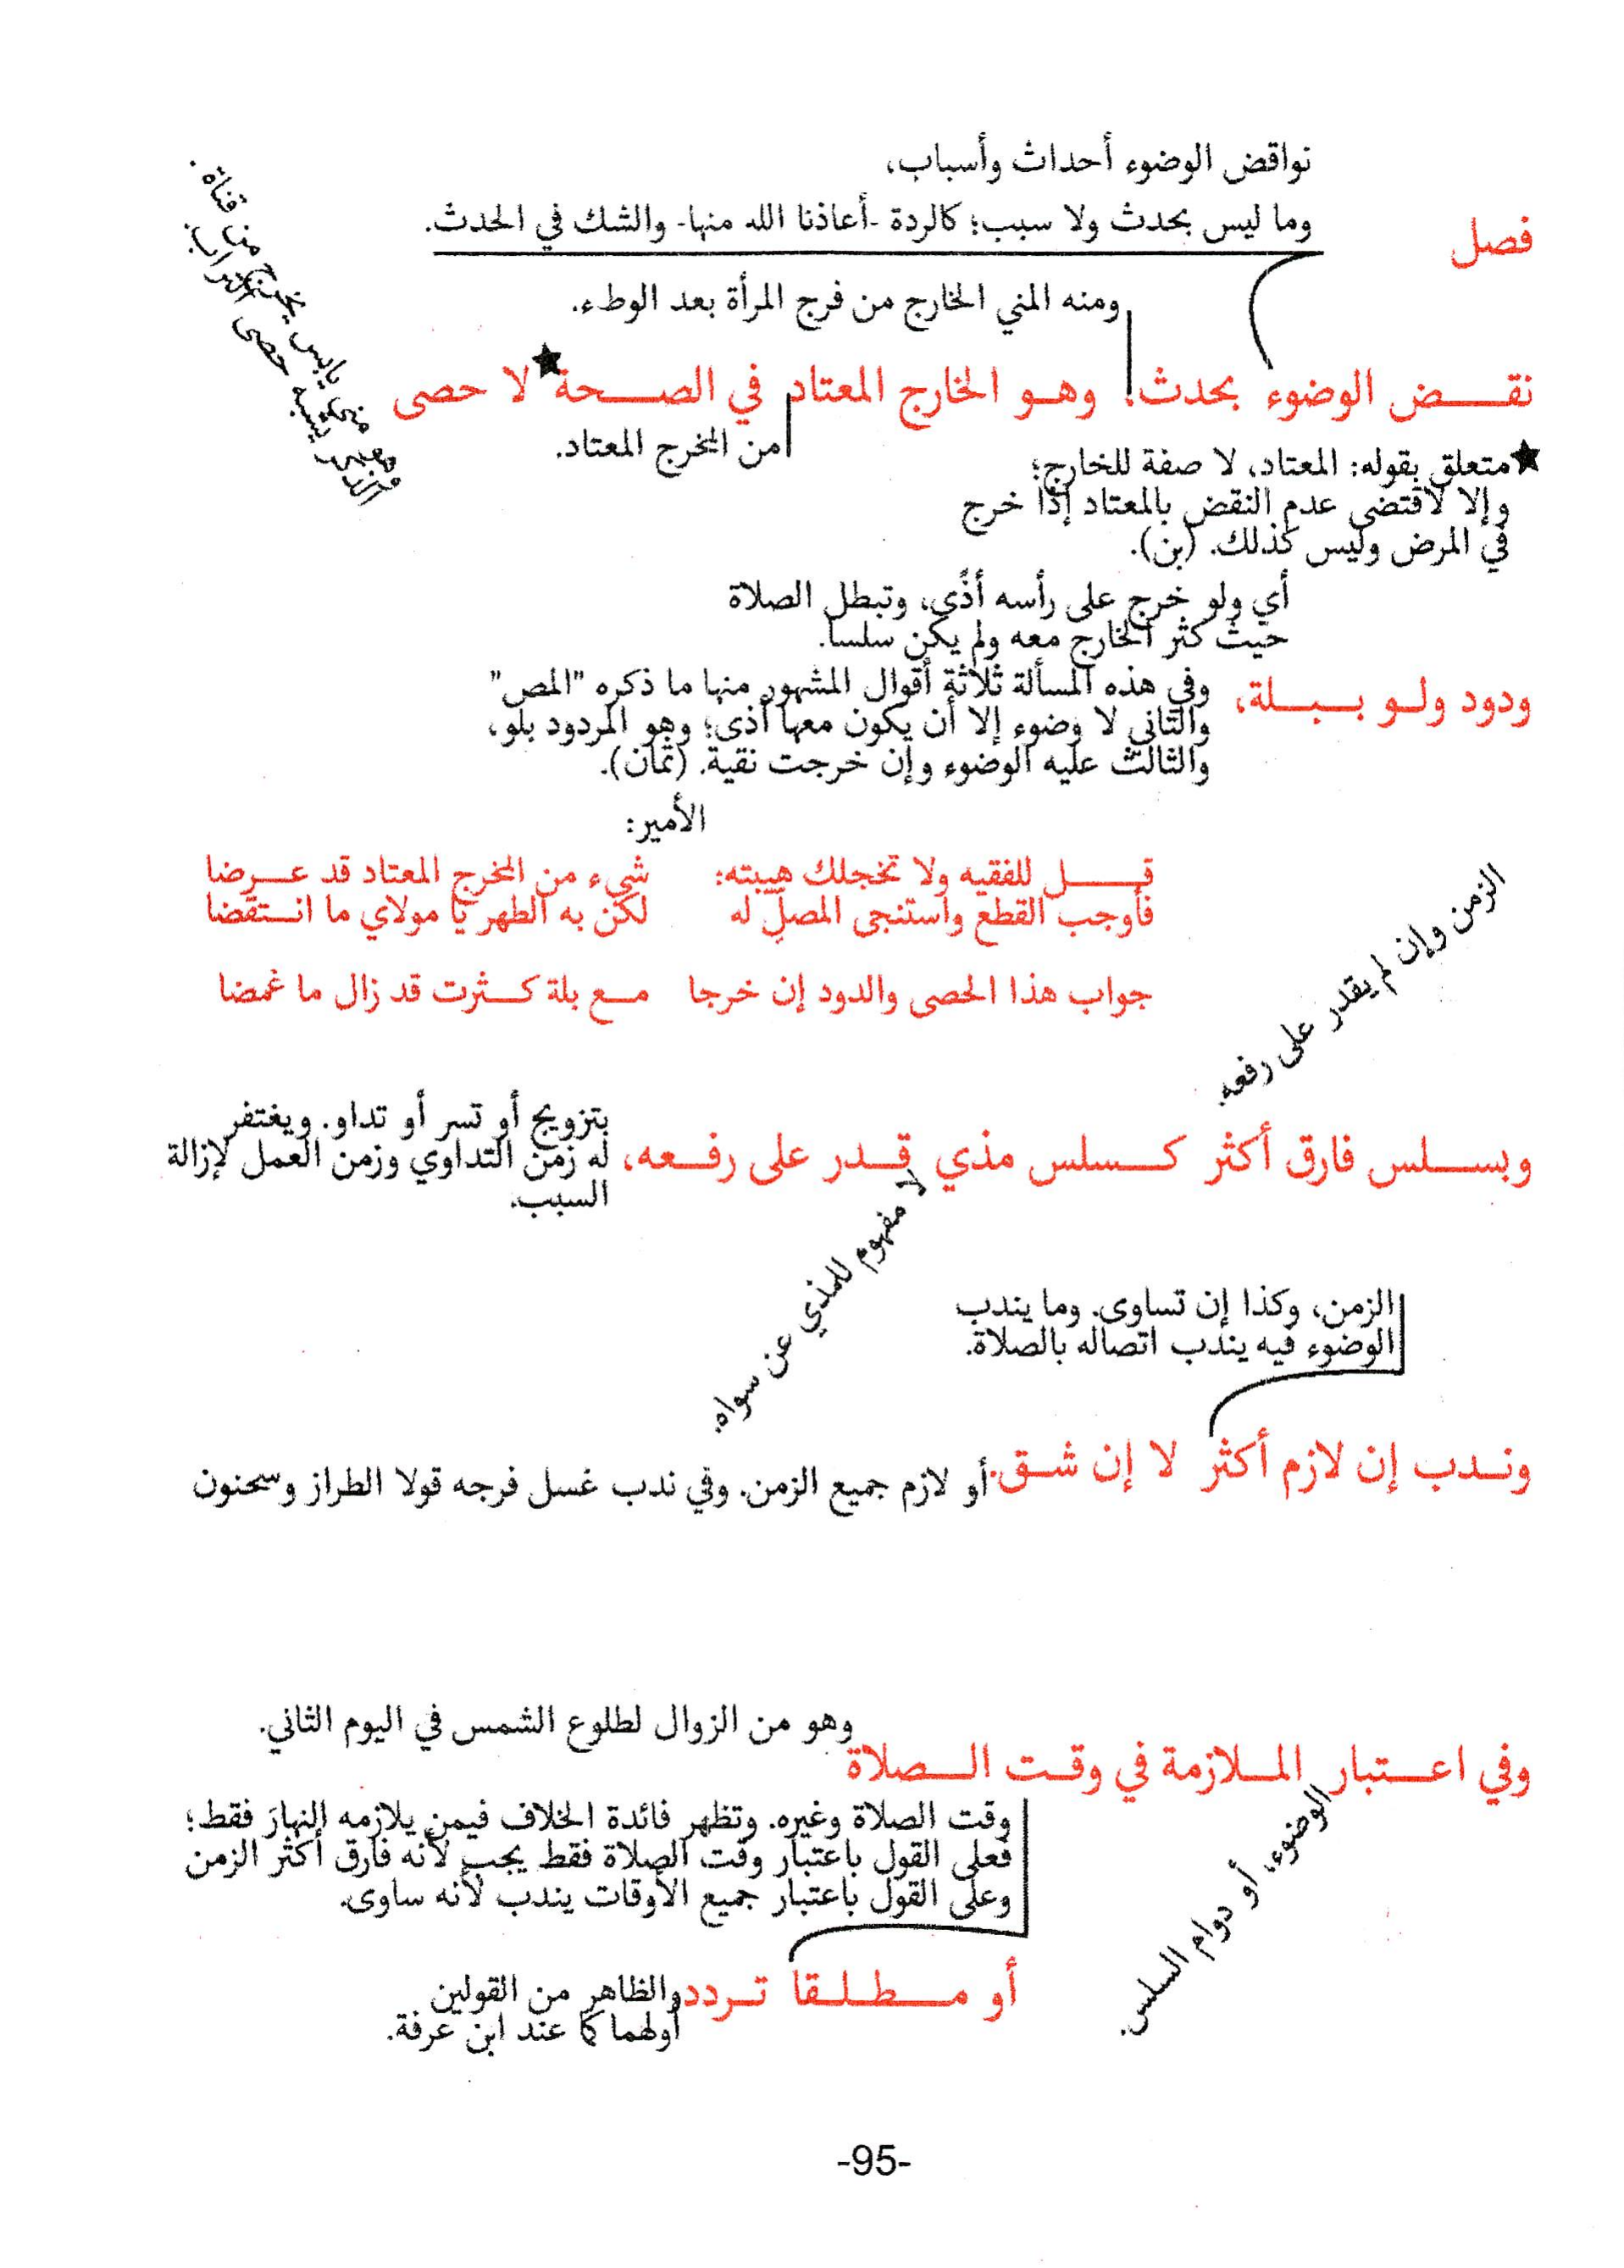 نواقض الوضوء أحداث وأسباب،
فصل
وما ليس بحدث ولا سبب؛ كالردة -أعاذنا الله منها- والشك في الحدث.
ومنه المني الخارج من فرج المرأة بعد الوطء.
نقض الوضوء بحدث؛ وهو الخارج المعتاد في الصحة★ لا حصى
من المخرج المعتاد.
وهو مني يابس يخرج من قناة
الذكر يشبه حصى التراب.
★متعلق بقوله: المعتاد، لا صفة للخارج؛
وإلا لاقتضى عدم النقض بالمعتاد إذا خرج
في المرض وليس كذلك. (بن).
أي ولو خرج على رأسه أذًى، وتبطل الصلاة
حيث كثر الخارج معه ولم يكن سلسا.
ودود ولو ببلة،
وفي هذه المسألة ثلاثة أقوال المشهور منها ما ذكره "المص"
والثاني لا وضوء إلا أن يكون معها أذى؛ وهو المردود بلو،
والثالث عليه الوضوء وإن خرجت نقية. (تمان).
الأمير:
قل للفقيه ولا تخجلك هيبته؛ شيء من المخرج المعتاد قد عرضا
فأوجب القطع واستنجى المصلِّ له لكن به الطهر يا مولاي ما انتقضا
جواب هذا الحصى والدود إن خرجا مع بلة كثرت قد زال ما غمضا
الزمن وإن لم يقدر على رفعه.
وبسلس فارق أكثر كسلس مذي قدر على رفعه،
بتزويج أو تسر أو تداو. ويغتفر
له زمن التداوي وزمن العمل لإزالة
السبب.
لا مفهوم للمذي عن سواه.
الزمن، وكذا إن تساوى. وما يندب
الوضوء فيه يندب اتصاله بالصلاة.
وندب إن لازم أكثر لا إن شق.
أو لازم جميع الزمن. وفي ندب غسل فرجه قولا الطراز وسحنون
وهو من الزوال لطلوع الشمس في اليوم الثاني.
وفي اعتبار الملازمة في وقت الصلاة
الوضوء، أو دوام السلس.
وقت الصلاة وغيره. وتظهر فائدة الخلاف فيمن يلازمه النهارَ فقط؛
فعلى القول باعتبار وقت الصلاة فقط يجب لأنه فارق أكثر الزمن
وعلى القول باعتبار جميع الأوقات يندب لأنه ساوى.
أو مطلقا تردد
والظاهر من القولين
أولهما كما عند ابن عرفة.
-95-